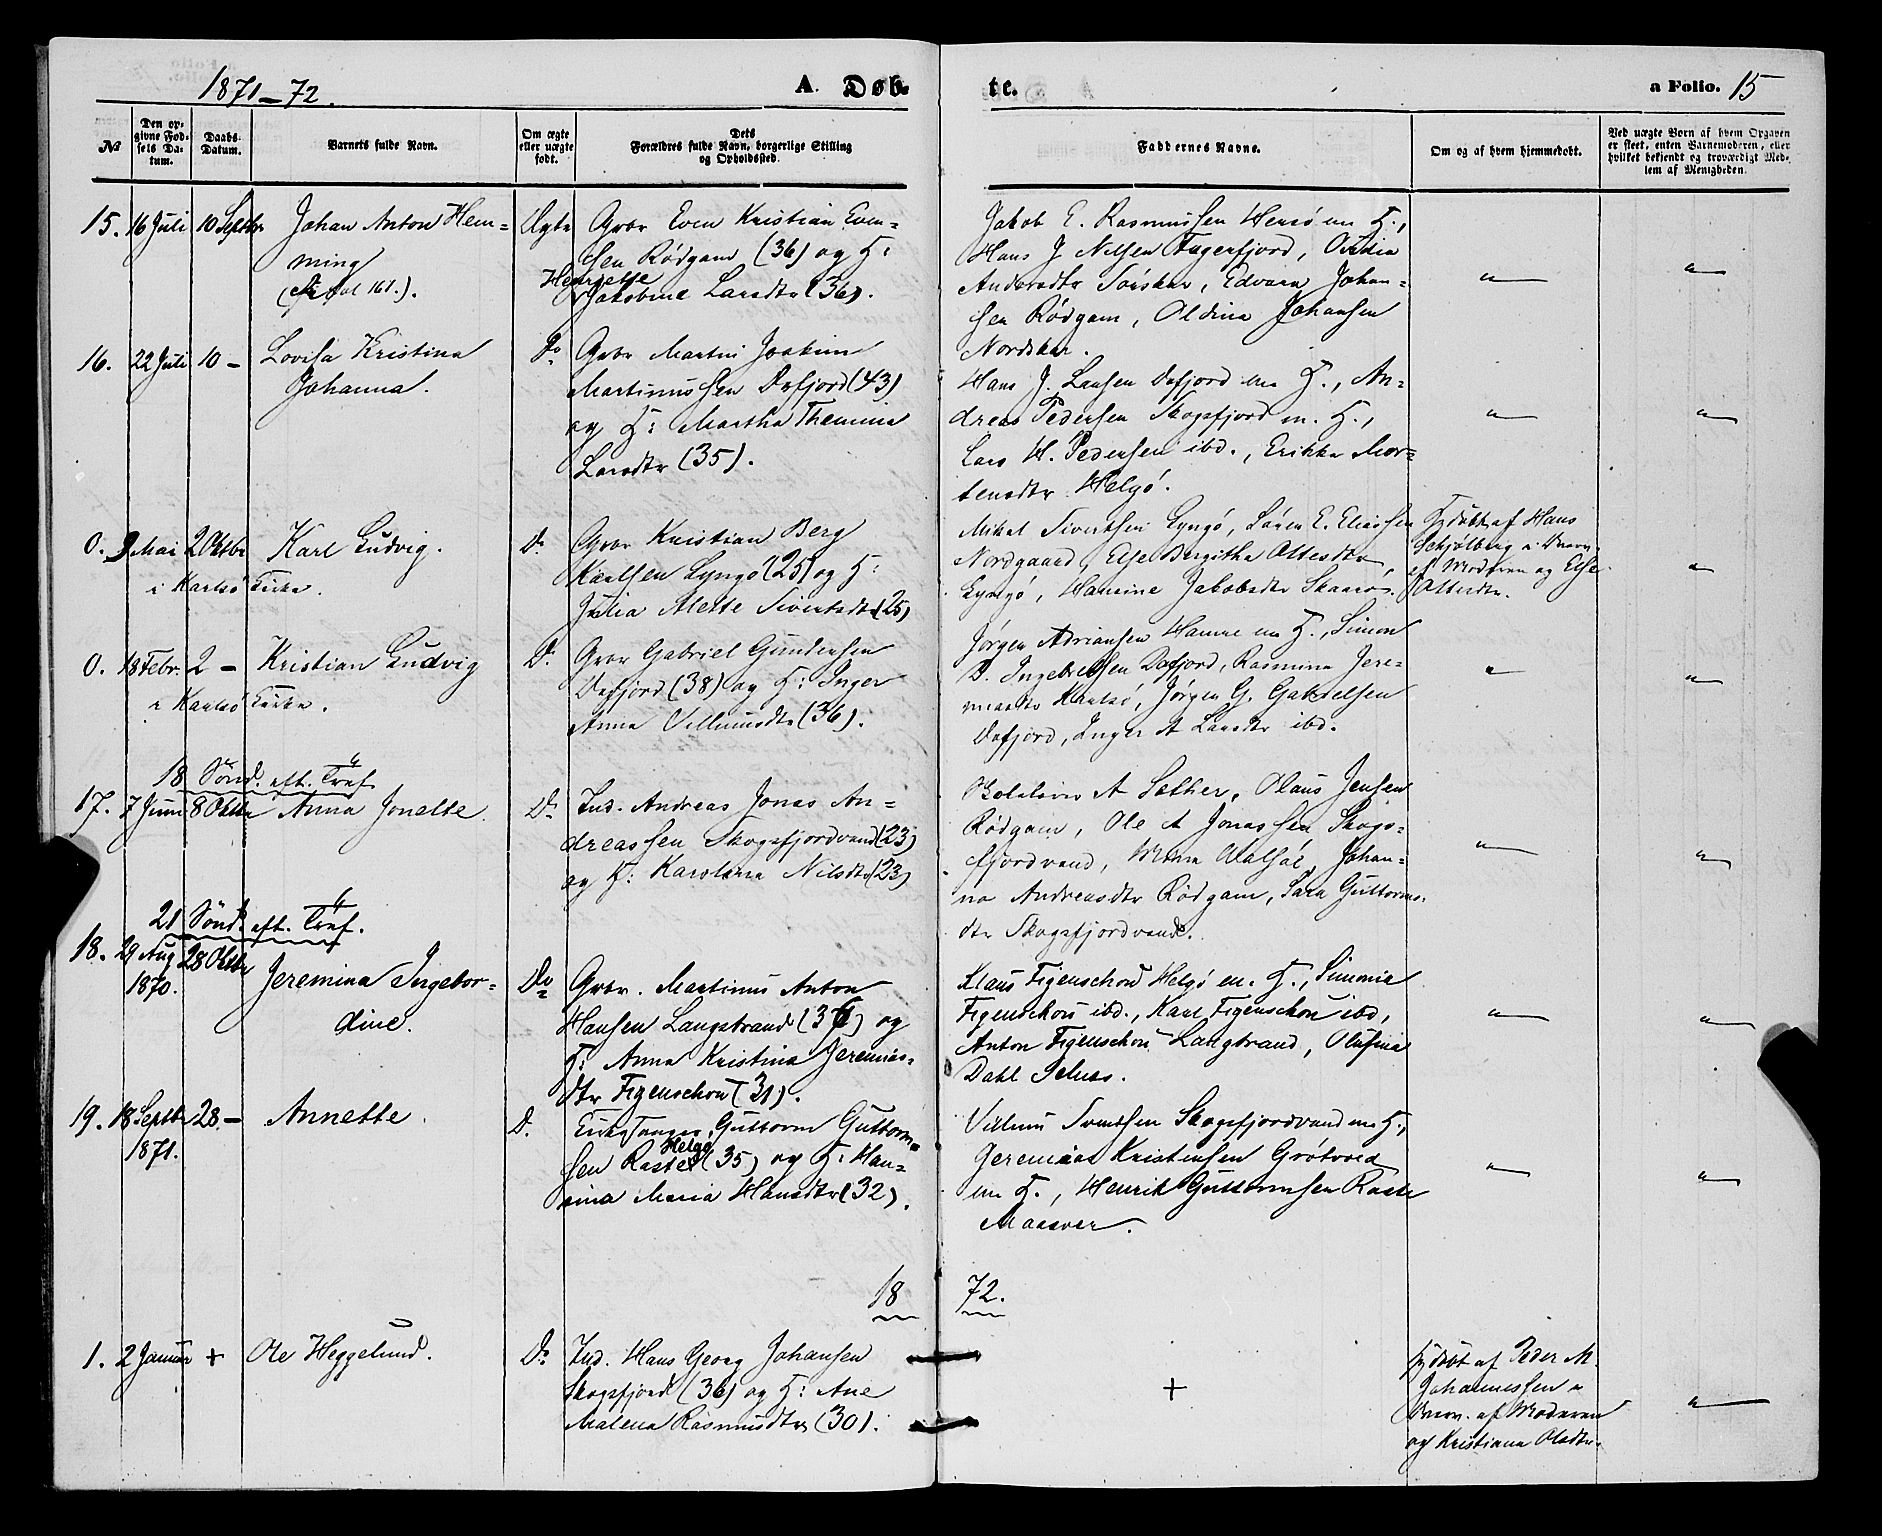 1871-72. A. Døb- te. a Folio. 15
№
Den opgivne Fødsels Datum.
Daabs-Datum.
Barnets fulde Navn.
Om ægte eller uægte født.
Dets Forældres fulde Navn, borgerlige Stilling og Opholdssted.
Faddernes Navne.
Om og af hvem hjemmedøbt.
Ved uægte Børn af hvem Opgaven er skeet, enten Barnemoderen, eller hvilket bekjendt og troværdigt Medlem af Menigheden.
15. 16 Juli 10 Septbr Johan Anton Hem-
ming
( Fol 161.).
Ægte
Gbr Even Kristian Even-
sen Rødgam (36) og H:
Henriette
Jakobine Larsdtr (36).
Jakob E. Rasmussen Hersø m H.,
Hans J Nilsen Fagerfjord, Ovidia
Andersdtr Torsker, Edvard Johan-
sen Rødgam, Oldine Johansen
Nordskar.
16. 22 Juli 10 – Lovisa Kristina
Johanna.
Do
Gbr Martin Joakim
Martinussen Dafjord (43)
og H: Martha Themina
Larsdtr (35).
Hans J. Larsen Dafjord m H., An-
dreas Pedersen Skogsfjord m. H.,
Lars H. Pedersen ibd., Erikka Mor-
tensdtr Helgø.
0. 9 Mai 2 Oktbr Karl Ludvig.
i Karlsø Kirke.
Do
Gbr Kristian Berg
Karlsen Lyngø (25) og H:
Julia Alette Sivertsdtr (25)
Mikal Sivertsen Lyngø, Søren E. Eliassen
Nordgaard, Else Bergitha Ottesdtr,
Lyngø, Hansine Jakobsdtr Skaarøs.
Hjdøbt af Hans
Schjølberg i Nærv.
af Moderen og Else
Ottesdtr.
0. 18 Febr. 2 – Kristian Ludvig
i Karlsø Kirke.
D.
Gbr Gabriel Gundersen
Dafjord (38) og H: Inger
Anna Villumsdtr (36).
Jørgen Adriansen Hamre m H., Simon
D. Ingebretsen Dafjord, Rasmine Jere-
miasdtr Karlsø, Jørgen G. Gabrielsen
Dafjord, Inger A Larsdtr ibd.
18 Sønd. eft. Tref.
17. 7 Juni 8 Oktbr Anna Jonette.
Do
Ind. Andreas Jonas An-
dreassen Skogsfjordvand (23)
og H: Karolina Nilsdtr (23)
A Sæther, Olaus Jensen
Rødgam, Ole A Jonassen Skogs-
fjordvand, Mina Johan-
na Andreasdtr Rødgam, Sara Guttorms-
dtr Skogsfjordvand.
21 Sønd. eft. Tref.
18. 29 Aug 28 Oktbr Jeremina Ingebor-
1870. dine.
Do
Gbr. Martinus Anton
Hansen Langstrand (36) og
H: Anna Kristina Jeremias-
dtr Figenschou (31).
Klaus Figenschou Helgø m. H., Simonie
Figenschou ibd., Karl Figenschou ibd,
Anton Figenschou Langstrand, Olufine
Dahl
19. 18 Septbr 28 – Annette.
1871.
D.
Kirkesanger Guttorm Guttorm-
Helgø
sen Raste (35) og H: Han-
sina Maria Hansdtr (32).
Villum Sivertsen Skogsfjordvand m H.,
Jeremias Kristensen Grøtved
m H., Henrik Guttormsen Raste
Maasvær.
18 72.
1. 2 Januar + Ole Heggelund.
Do
Ind. Hans Georg Johansen
Skogsfjord (36) og H: Ane
Malena Rasmusdtr (30).
+
Hjdøbt af Peder M.
Johannessen i
Nærv. af Moderen
og Kristiana Olsdtr.